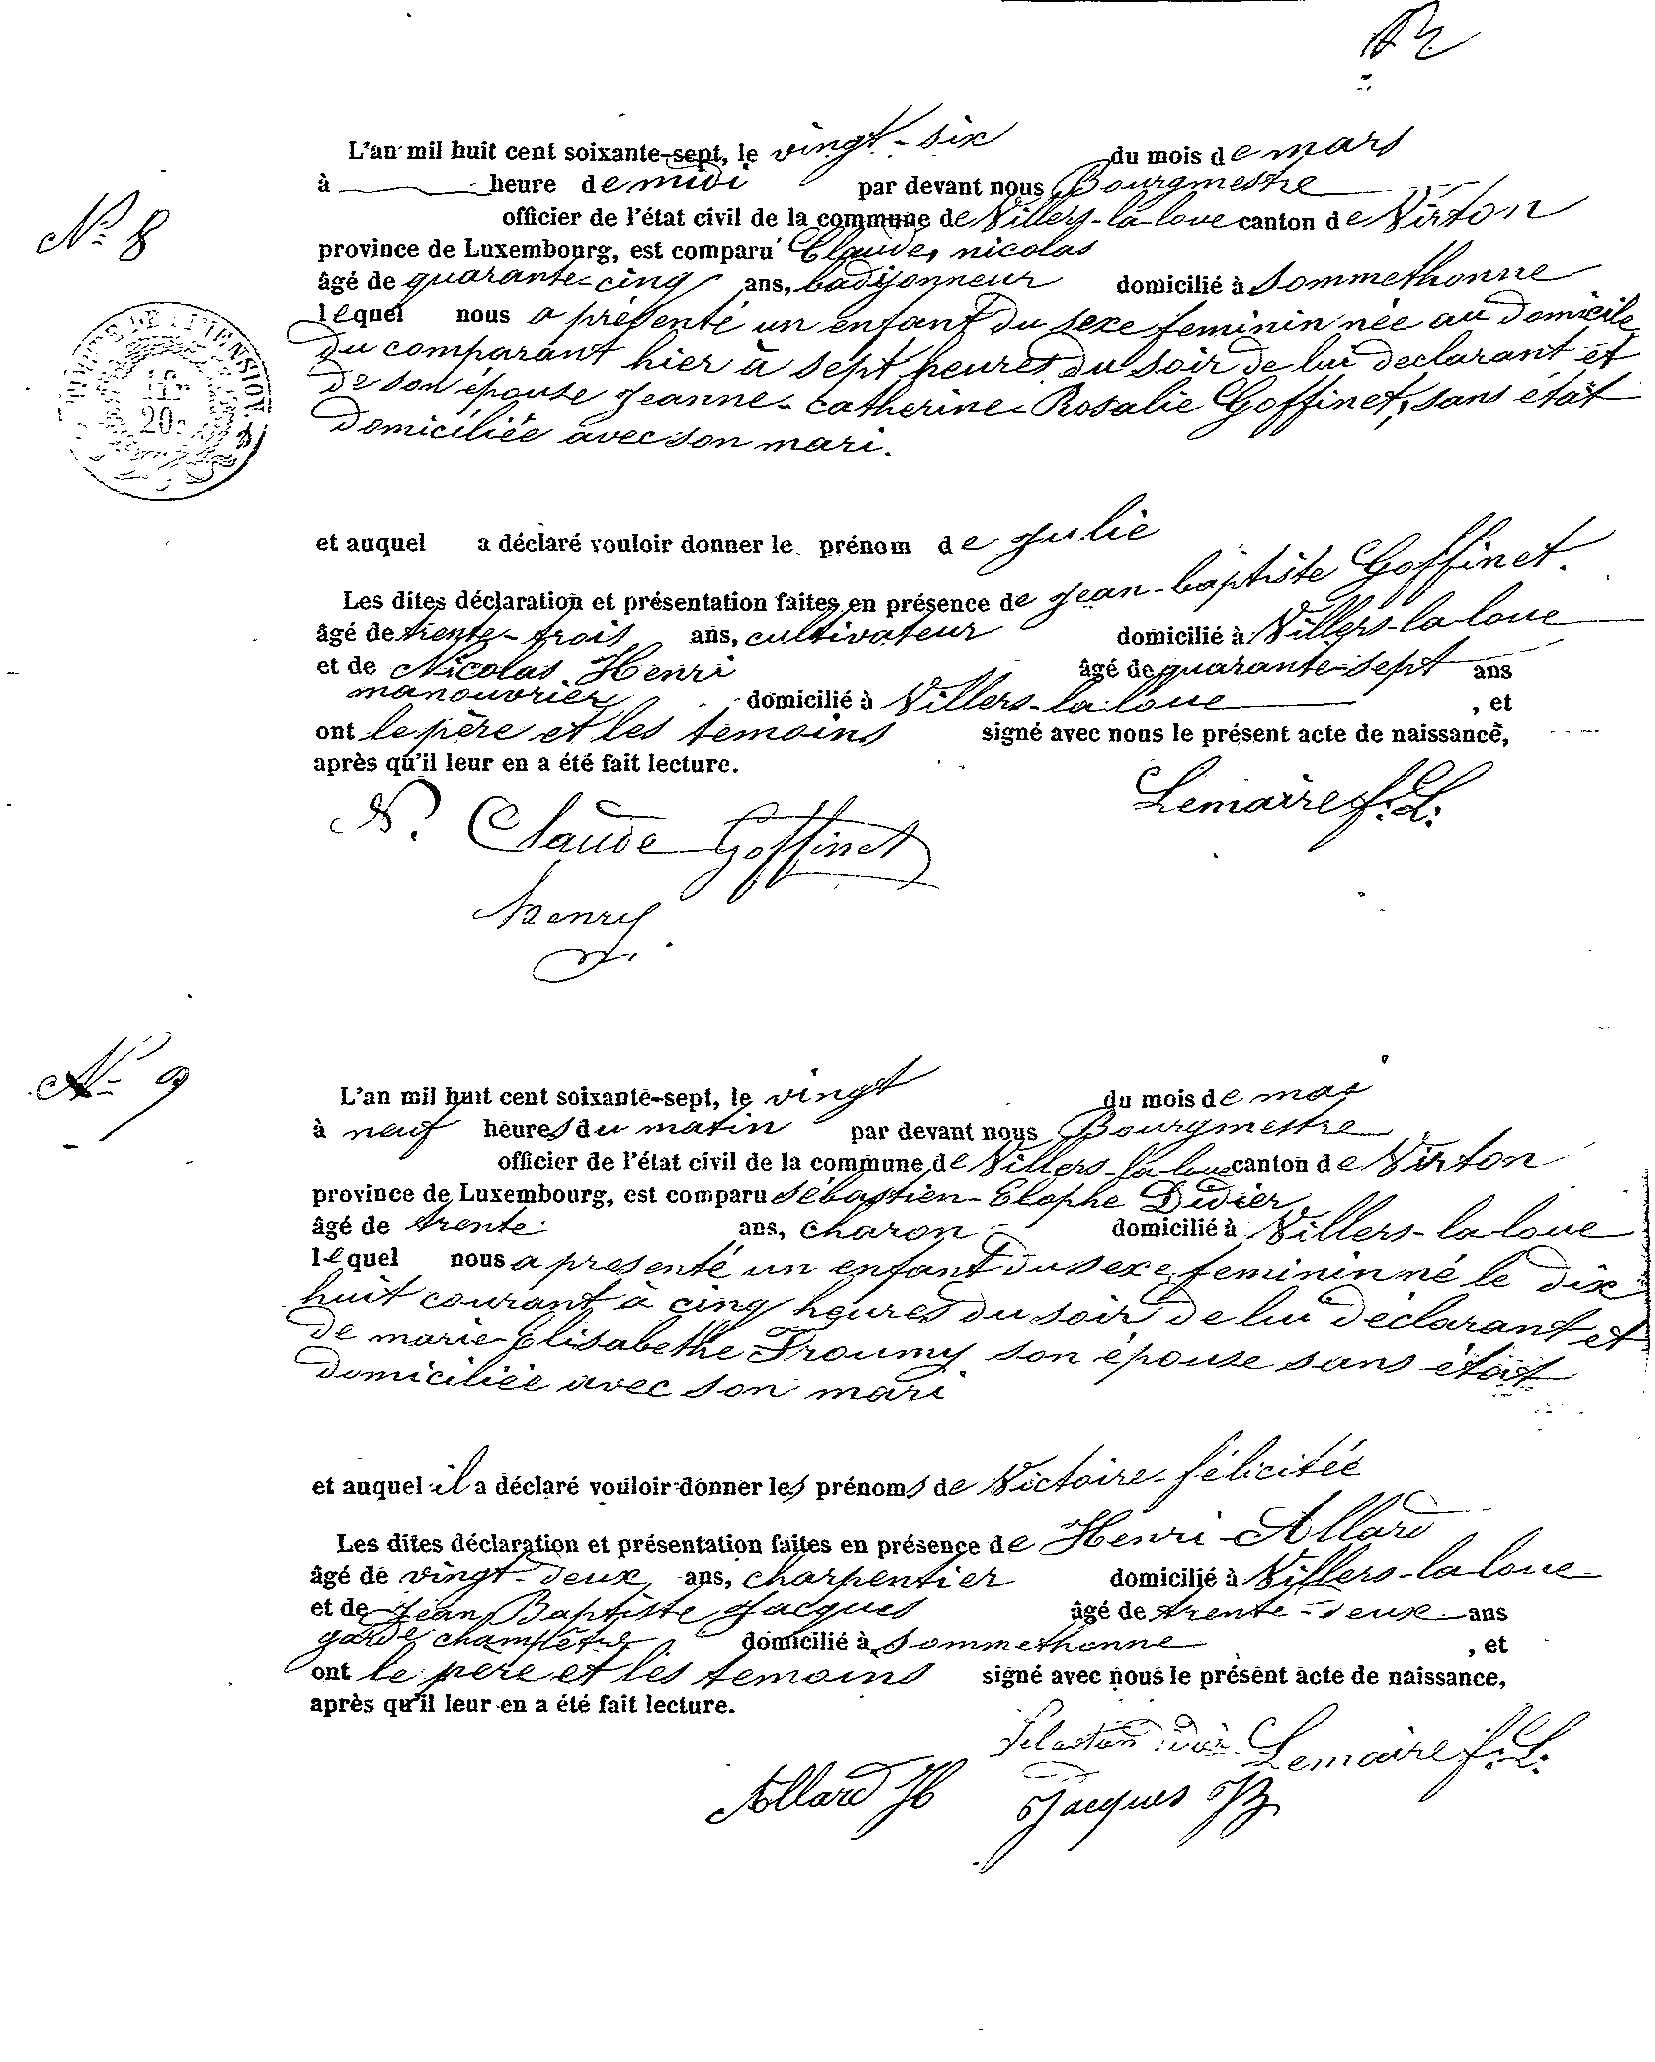 L'an mil huit cent soixante-sept, le vingt-six du mois de mars
à heure de midi par devant nous Bourgmestre
officier de l'état civil de la commune de Villers-la-loue canton de Virton
province de Luxembourg, est comparu Claude, nicolas
N° 8
âgé de quarante-cinq ans, badijonneur domicilié à Sommethonne
lequel nous a présenté un enfant du sexe feminin née au domicile
du comparant hier à sept heures du soir de lui declarant et
de son épouse Jeanne-Catherine-Rosalie Goffinet, sans état
domiciliée avec son mari.
20
et auquel a déclaré vouloir donner le prénom de Julie
Les dites déclaration et présentation faites en présence de Jean-baptiste Goffinet.
âgé de trente-trois ans, cultivateur domicilié à Villers-la loue
et de Nicolas Henri âgé de quarante-sept ans
manouvrier domicilié à Villers-la loue , et
ont le père et les temoins signé avec nous le présent acte de naissance,
après qu'il leur en a été fait lecture.
Lemaire f. L.
N. Claude Goffinet
henry
N° 9
L'an mil huit cent soixante-sept, le vingt du mois de mai
à neuf heures du matin par devant nous Bourgmestre
officier de l'état civil de la commune de Villers-la loue canton de Virton
province de Luxembourg, est comparu Sébastien-Elophe Didier
âgé de trente ans, charon domicilié à Villers-la loue
lequel nous a presenté un enfant du sexe feminin né le dix
huit courant à cinq heures du soir de lui déclarant et
de marie-Elisabethe Froumy son épouse sans état
domiciliée avec son mari
et auquel il a déclaré vouloir donner les prénoms de Victoire-félicitée
Les dites déclaration et présentation faites en présence de Henri-Allard
âgé de vingt-deux ans, charpentier domicilié à Villers-la loue
et de Jean Baptiste Jacques âgé de trente-deux ans
garde champêtre domicilié à Sommethonne , et
ont le père et les temoins signé avec nous le présent acte de naissance,
après qu'il leur en a été fait lecture.
Lemaire f. L.
Allard H Jacques JB